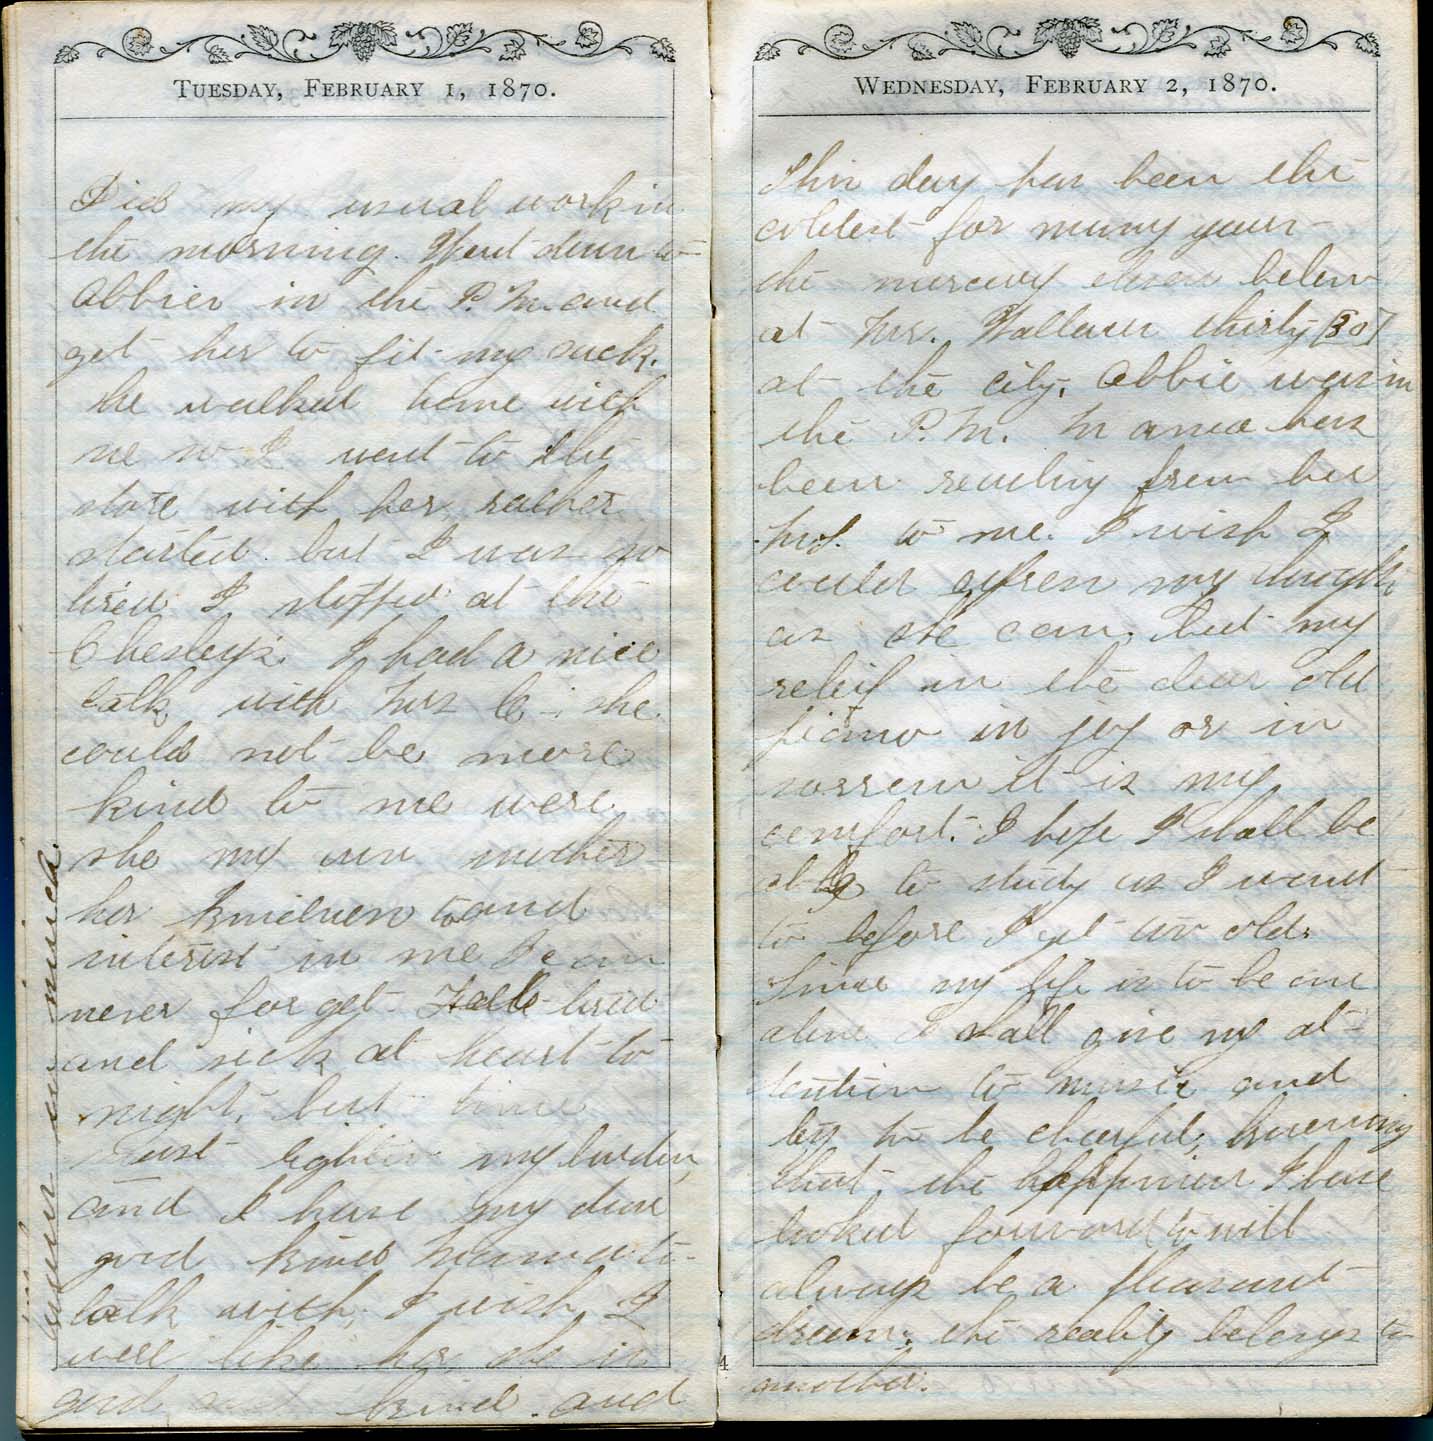 TUESDAY, FEBRUARY 1, 1870.
Did my usual work in
the morning. Went down to
Abbies in the P.M. and
get her to fit my sack.
she walked home with
me so I went to the
store with her, rather
started but I was so
tired I stopped at the
Chesley's. I had a nice
talk with Mrs C - she
could not be more
kind to me were
she my own mother
her kindness to and
interest in me I can
never forget. tired
and sick at heart to-
night, but time
must lighten my burden,
and I have my dear
good kind Mama to
talk with, I wish I
were like her, she is
good and kind and
loves us so much.
WEDNESDAY, FEBRUARY 2, 1870.
This day has been the
coldest for many years -
the mercury eleven below
at Mrs. Wallaces thirty (30)
at the city. Abbie was in
the P.M. Mama has
been reading from her
to me. I wish I
could express my thoughts
as she can, but my
releif in the dear old
piano in joy or in
sorrow it is my
comfort. I hope I shall be
able to study as I want
to before I get too old.
Since my life is to be one
alone I shall give my at-
tention to music and
try to be cheerful, knowing
that the happiness I have
looked forward to will
always be a pleasant
dream, the reality belongs to
another.
4